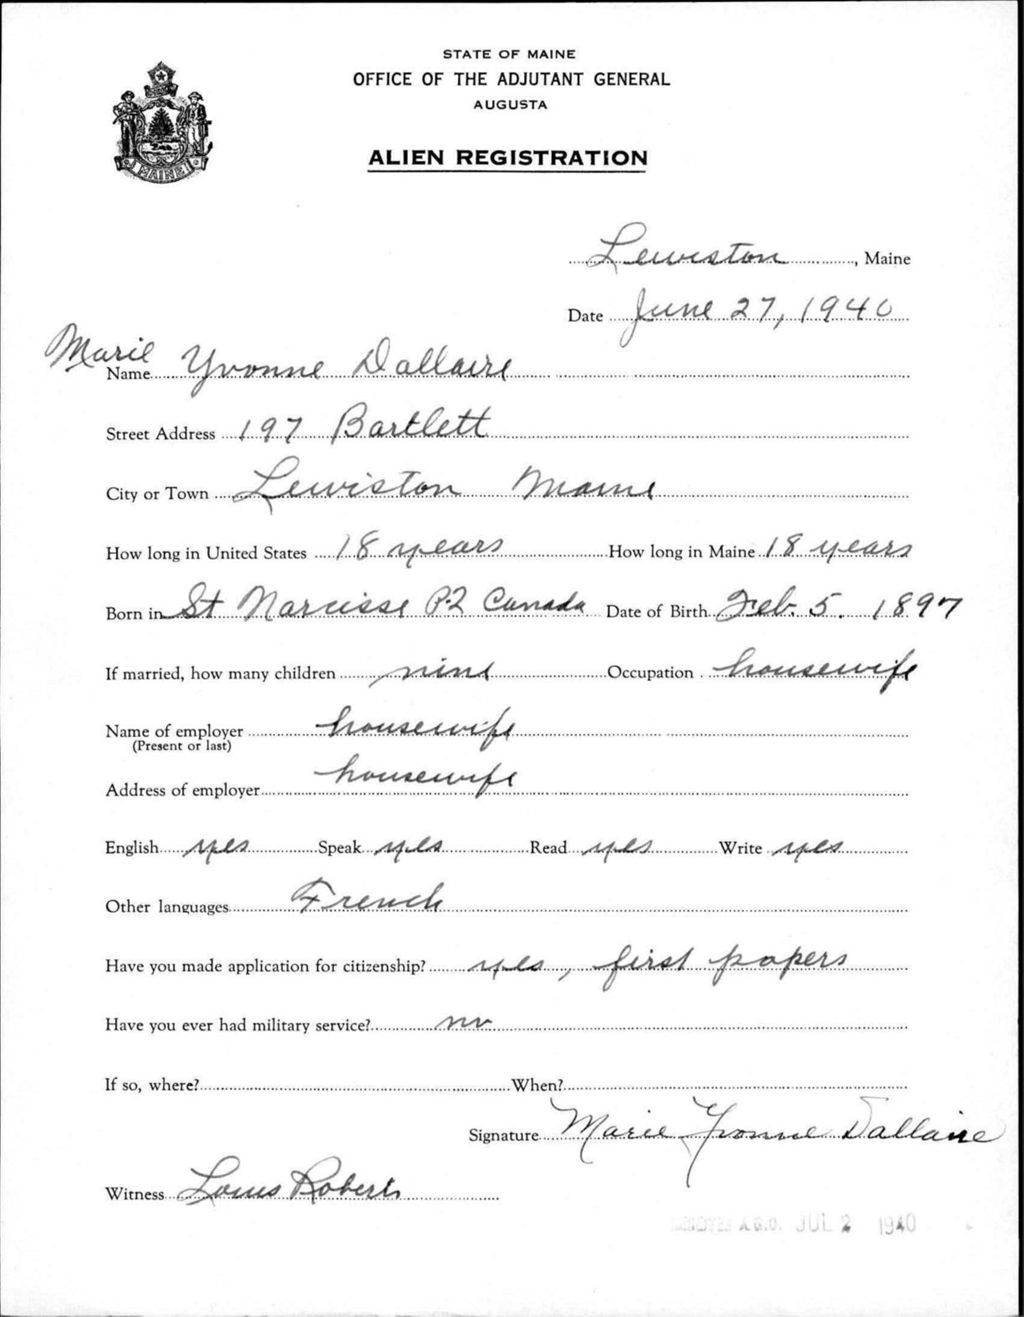 STATE OF MAINE
OFFICE OF THE ADJUTANT GENERAL
AUGUSTA
ALIEN REGISTRATION
MAINE
Lewiston, Maine
Date June 27, 1940
Marie
Name Yvonne Dallaire
Street Address 197 Bartlett
City or Town Lewiston Maine
How long in United States 18 years How long in Maine 18 years
Born in St Narcisse P.Q Canada Date of Birth Feb. 5. 1897
If married, how many children nine Occupation housewife
Name of employer housewife
(Present or last)
Address of employer housewife
English yes Speak yes Read yes Write yes
Other languages French
Have you made application for citizenship? yes, first papers
Have you ever had military service? no
If so, where? When?
Signature Marie Yvonne Dallaire
Witness Louis Roberts
A.G.O. JUL 2 1940